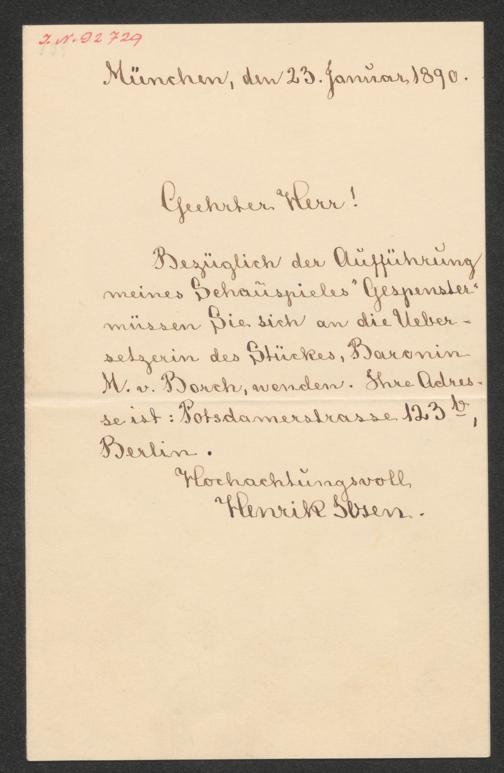 J. N. 92729
München, den 23. Januar 1890.
Geehrter Herr!
Bezüglich der Aufführung
meines Schauspieles "Gespenster"
müssen Sie sich an die Ueber-
setzerin des Stückes, Baronin
M. v. Borch, wenden. Ihre Adres-
se ist: Potsdamerstrasse 123 b,
Berlin.
Hochachtungsvoll
Henrik Ibsen.